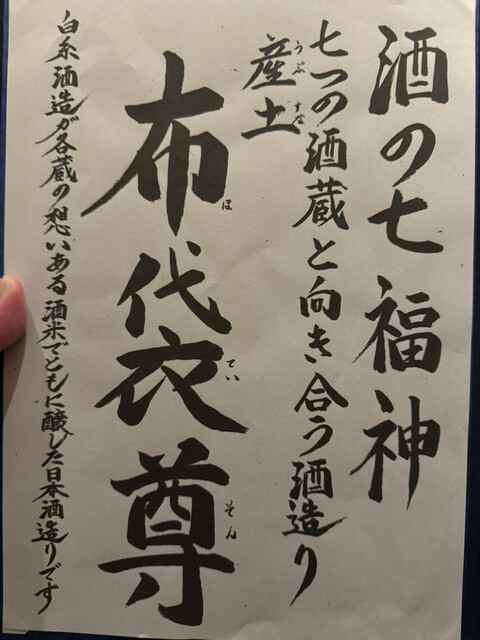 酒の七福神
七つの酒蔵と向き合う酒造り
産土
うぶすな
布代衣尊
ほていそん
白糸酒造が各蔵の想いある酒米でともに醸した日本酒造りです